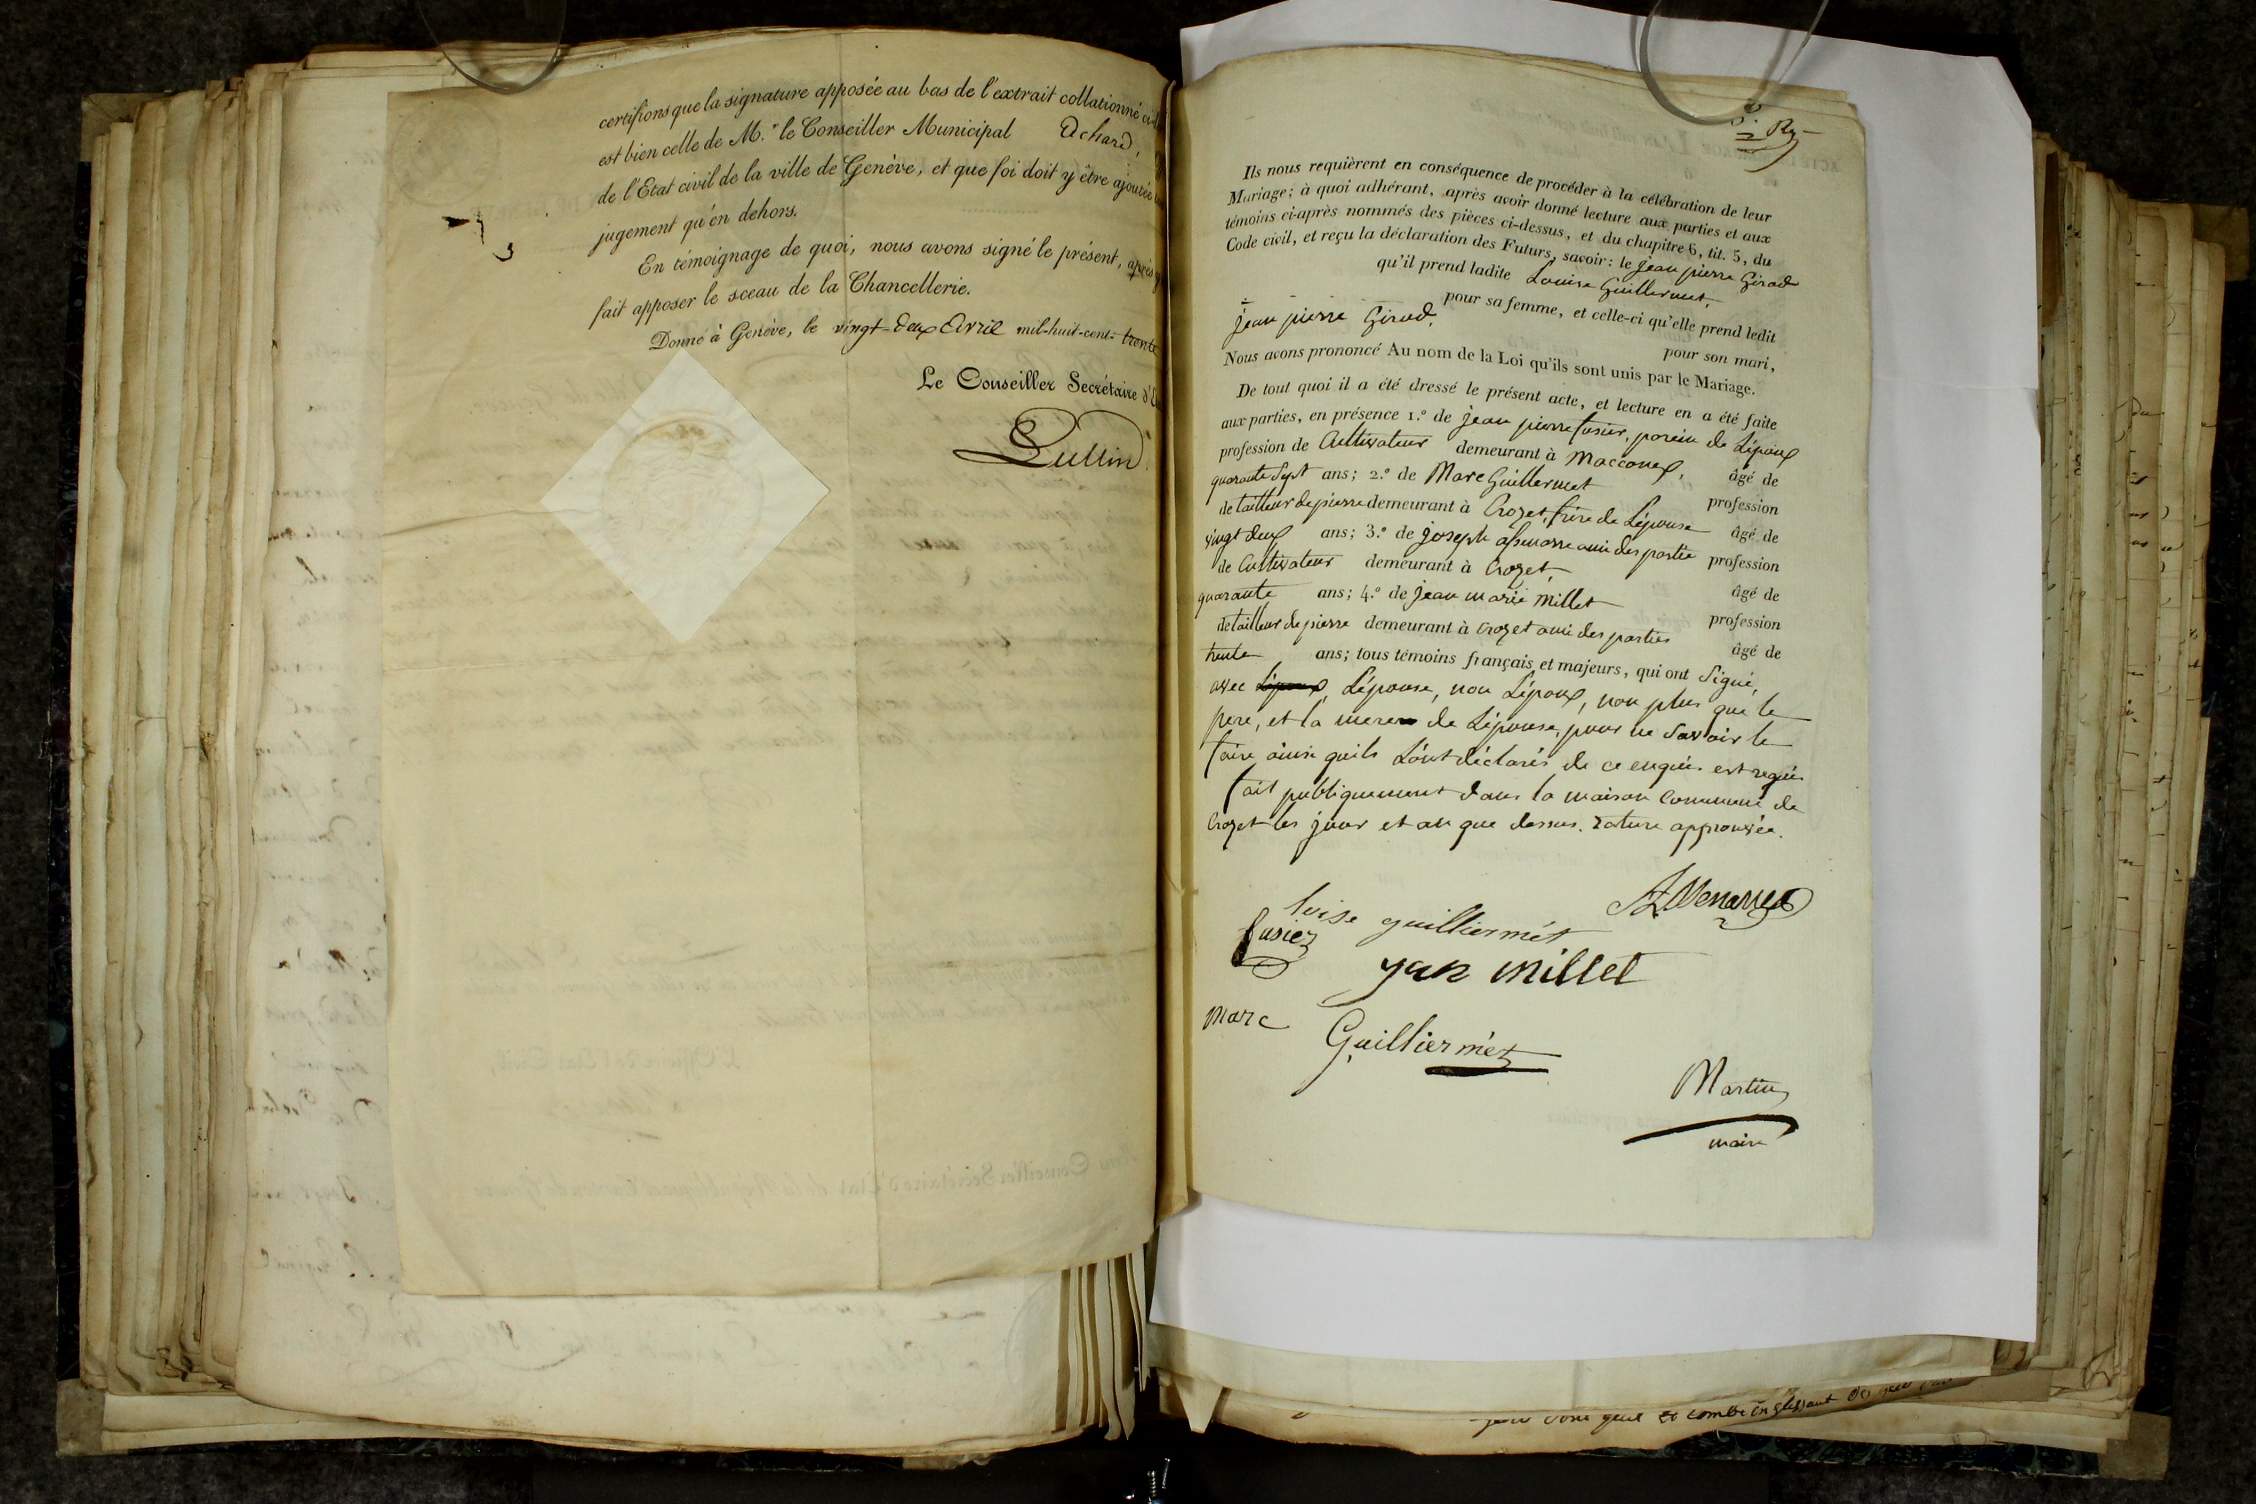 certifions que la signature apposée au bas de l'extrait collationné
est bien celle de M.r le Conseiller Municipal Achard,
de l'Etat civil de la ville de Genève, et que foi doit y être ajoutée
jugement qu'en dehors.
En témoignage de quoi, nous avons signé le présent, après
fait apposer le sceau de la Chancellerie.
Donné à Genève, le vingt-deux Avril mil-huit-cent-trente
Le Conseiller Secrétaire
Lullin
Ils nous requièrent en conséquence de procéder à la célébration de leur
Mariage; à quoi adhérant, après avoir donné lecture aux parties et aux
témoins ci-après nommés des pièces ci-dessus, et du chapitre 6, tit. 5, du
Code civil, et reçu la déclaration des Futurs, savoir: le jean pierre Girod
qu'il prend ladite Louise Guillermet,
pour sa femme, et celle-ci qu'elle prend ledit
jean pierre Girod, pour son mari,
Nous avons prononcé Au nom de la Loi qu'ils sont unis par le Mariage.
De tout quoi il a été dressé le présent acte, et lecture en a été faite
aux parties, en présence 1.º de jean pierre fusier, parein de Lépoux
profession de Cultivateur demeurant à Macconex, âgé de
quarante Sept ans; 2.º de Marc Guillermet profession
de tailleur de pierre demeurant à Crozet, frère de Lépouse âgé de
vingt deux ans; 3.º de joseph ami des partie profession
de Cultivateur demeurant à Crozet, âgé de
quarante ans; 4.º de jean marie Millet profession
de tailleur de pierre demeurant à Crozet ami des parties âgé de
trente ans; tous témoins français et majeurs, qui ont Signé,
avec Lépoux, Lépouse, non Lépoux, non plus que le
pere, et la mere de Lépouse, pour ne Savoir le
faire ainsi quils Lont déclarés de ce enquis est requis
fait publiquement dans la maison Commune de
Crozet les jour et an que dessus. rature approuvée.
luise guilliermét
fusier
yan millet
marc Guilliermét
Martin
maire